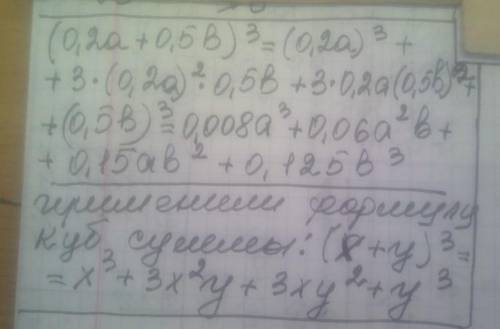 (0,2а + 0,5в)³ = (0,2а)³ +
+ 3·(0,2а)²·0,5в + 3·0,2а(0,5в)²+
+(0,5в)³=0,008а³+0,06а²в+
+ 0,15ав² + 0,125в³
применили формулу
куб суммы: (x+y)³=
= x³ + 3x²y + 3xy² + y³